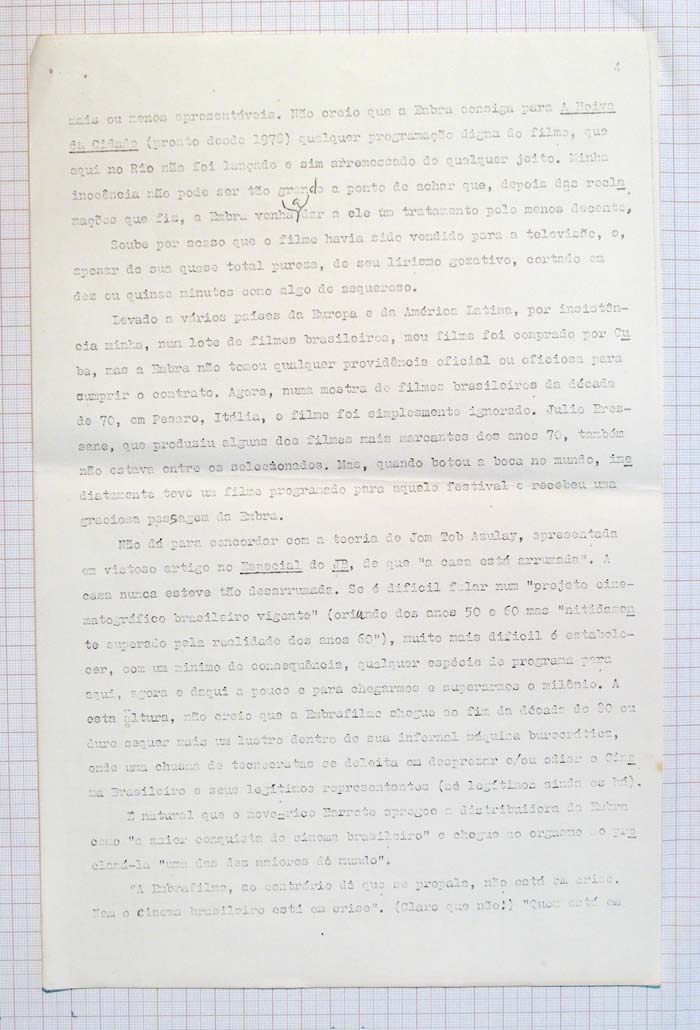 4
mais ou menos apresentáveis. Não creio que a Embra consiga para A Noiva
da Cidade (pronto desde 1978) qualquer programação digna do filme, que
aqui no Rio não foi lançado e sim arremessado de qualquer jeito. Minha
inocência não pode ser tão grande a ponto de achar que, depois das recla
mações que fiz, a Embra venha a dar a ele um tratamento pelo menos decente.
Soube por acaso que o filme havia sido vendido para a televisão, e,
apesar de sua quase total pureza, de seu lirismo gozativo, cortado em
dez ou quinze minutos como algo de asqueroso.
Levado a vários países da Europa e da América Latina, por insistên-
cia minha, num lote de filmes brasileiros, meu filme foi comprado por Cu
ba, mas a Embra não tomou qualquer providência oficial ou oficiosa para
cumprir o contrato. Agora, numa mostra de filmes brasileiros da década
de 70, em Pesaro, Itália, o filme foi simplesmente ignorado. Julio Bres-
sane, que produziu alguns dos filmes mais marcantes dos anos 70, também
não estava entre os selecionados. Mas, quando botou a boca no mundo, ime
diatamente teve um filme programado para aquele festival e recebeu uma
graciosa passagem da Embra.
Não dá para concordar com a teoria de Jom Tob Azulay, apresentada
em vistoso artigo no Especial do JB, de que "a casa está arrumada". A
casa nunca esteve tão desarrumada. Se é difícil falar num "projeto cine-
matográfico brasileiro vigente" (oriundo dos anos 50 e 60 mas "nitidamen
te superado pela realidade dos anos 60"), muito mais difícil é estabele-
cer, com um mínimo de consequência, qualquer espécie de programa para
aqui, agora e daqui a pouco e para chegarmos e superarmos o milênio. A
esta altura, não creio que a Embrafilme chegue ao fim da década de 80 ou
dure sequer mais um lustro dentro de sua infernal máquina burocrática,
onde uma chusma de tecnocratas se deleita em desprezar e/ou odiar o Cine
ma Brasileiro e seus legítimos representantes (só legítimos ainda os há).
É natural que o novo-rico Barreto apregoe a distribuidora da Embra
como "a maior conquista do cinema brasileiro" e chegue ao orgasmo ao pro
clamá-la "uma das dez maiores do mundo".
"A Embrafilme, ao contrário do que se propala, não está em crise.
Nem o cinema brasileiro está em crise". (Claro que não!) "Quem está em